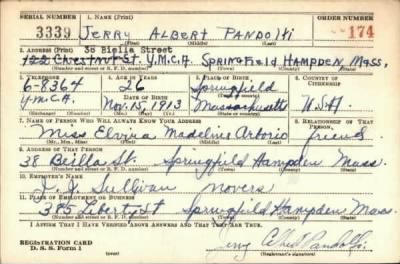 SERIAL NUMBER 1. NAME (Print) ORDER NUMBER
3339 JERRY ALBERT PANDOLFI 174
(First) (Middle) (Last)
2. ADDRESS (Print) 38 Biella Street
122 Chestnut St. Y.M.C.A. SPRINGFIELD HAMPDEN MASS.
(Number and street or R. F. D. number) (Town) (County) (State)
3. TELEPHONE 4. AGE IN YEARS 5. PLACE OF BIRTH 6. COUNTRY OF CITIZENSHIP
6-8364 26 Springfield
Y.M.C.A. DATE OF BIRTH
Nov. 15, 1913 Massachusetts U.S.A.
(Exchange) (Number) (Mo.) (Day) (Yr.) (State or country)
7. NAME OF PERSON WHO WILL ALWAYS KNOW YOUR ADDRESS 8. RELATIONSHIP OF THAT PERSON
Miss Elvira Madeline Arborio friend
(Mr., Mrs., Miss) (First) (Middle) (Last)
9. ADDRESS OF THAT PERSON
38 Beilla St. Springfield Hampden Mass.
(Number and street or R. F. D. number) (Town) (County) (State)
10. EMPLOYER'S NAME
J. J. Sullivan Movers
11. PLACE OF EMPLOYMENT OR BUSINESS
385 Liberty St Springfield Hampden Mass.
(Number and street or R. F. D. number) (Town) (County) (State)
I AFFIRM THAT I HAVE VERIFIED ABOVE ANSWERS AND THAT THEY ARE TRUE.
REGISTRATION CARD Jerry Albert Pandolfi
D. S. S. Form 1 (over) (Registrant's signature)